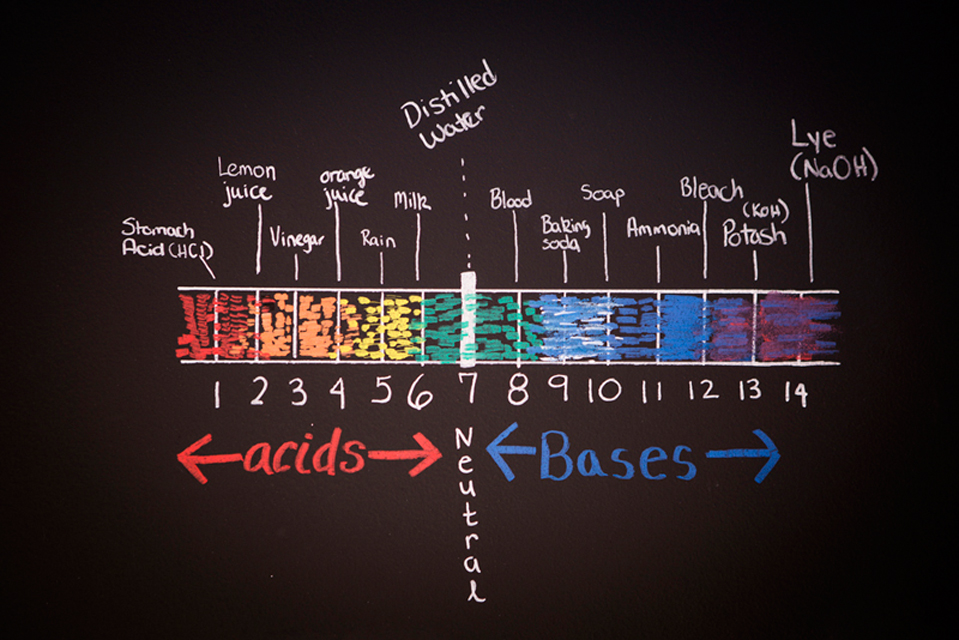 Distilled
Water
Lye
(NaOH)
Lemon
juice
orange
juice
Milk
Blood
Soap
Bleach
(KOH)
Potash
Stomach
Acid (HCl)
Vinegar
Rain
Baking
soda
Ammonia
1 2 3 4 5 6 7 8 9 10 11 12 13 14
acids
Bases
Neutral